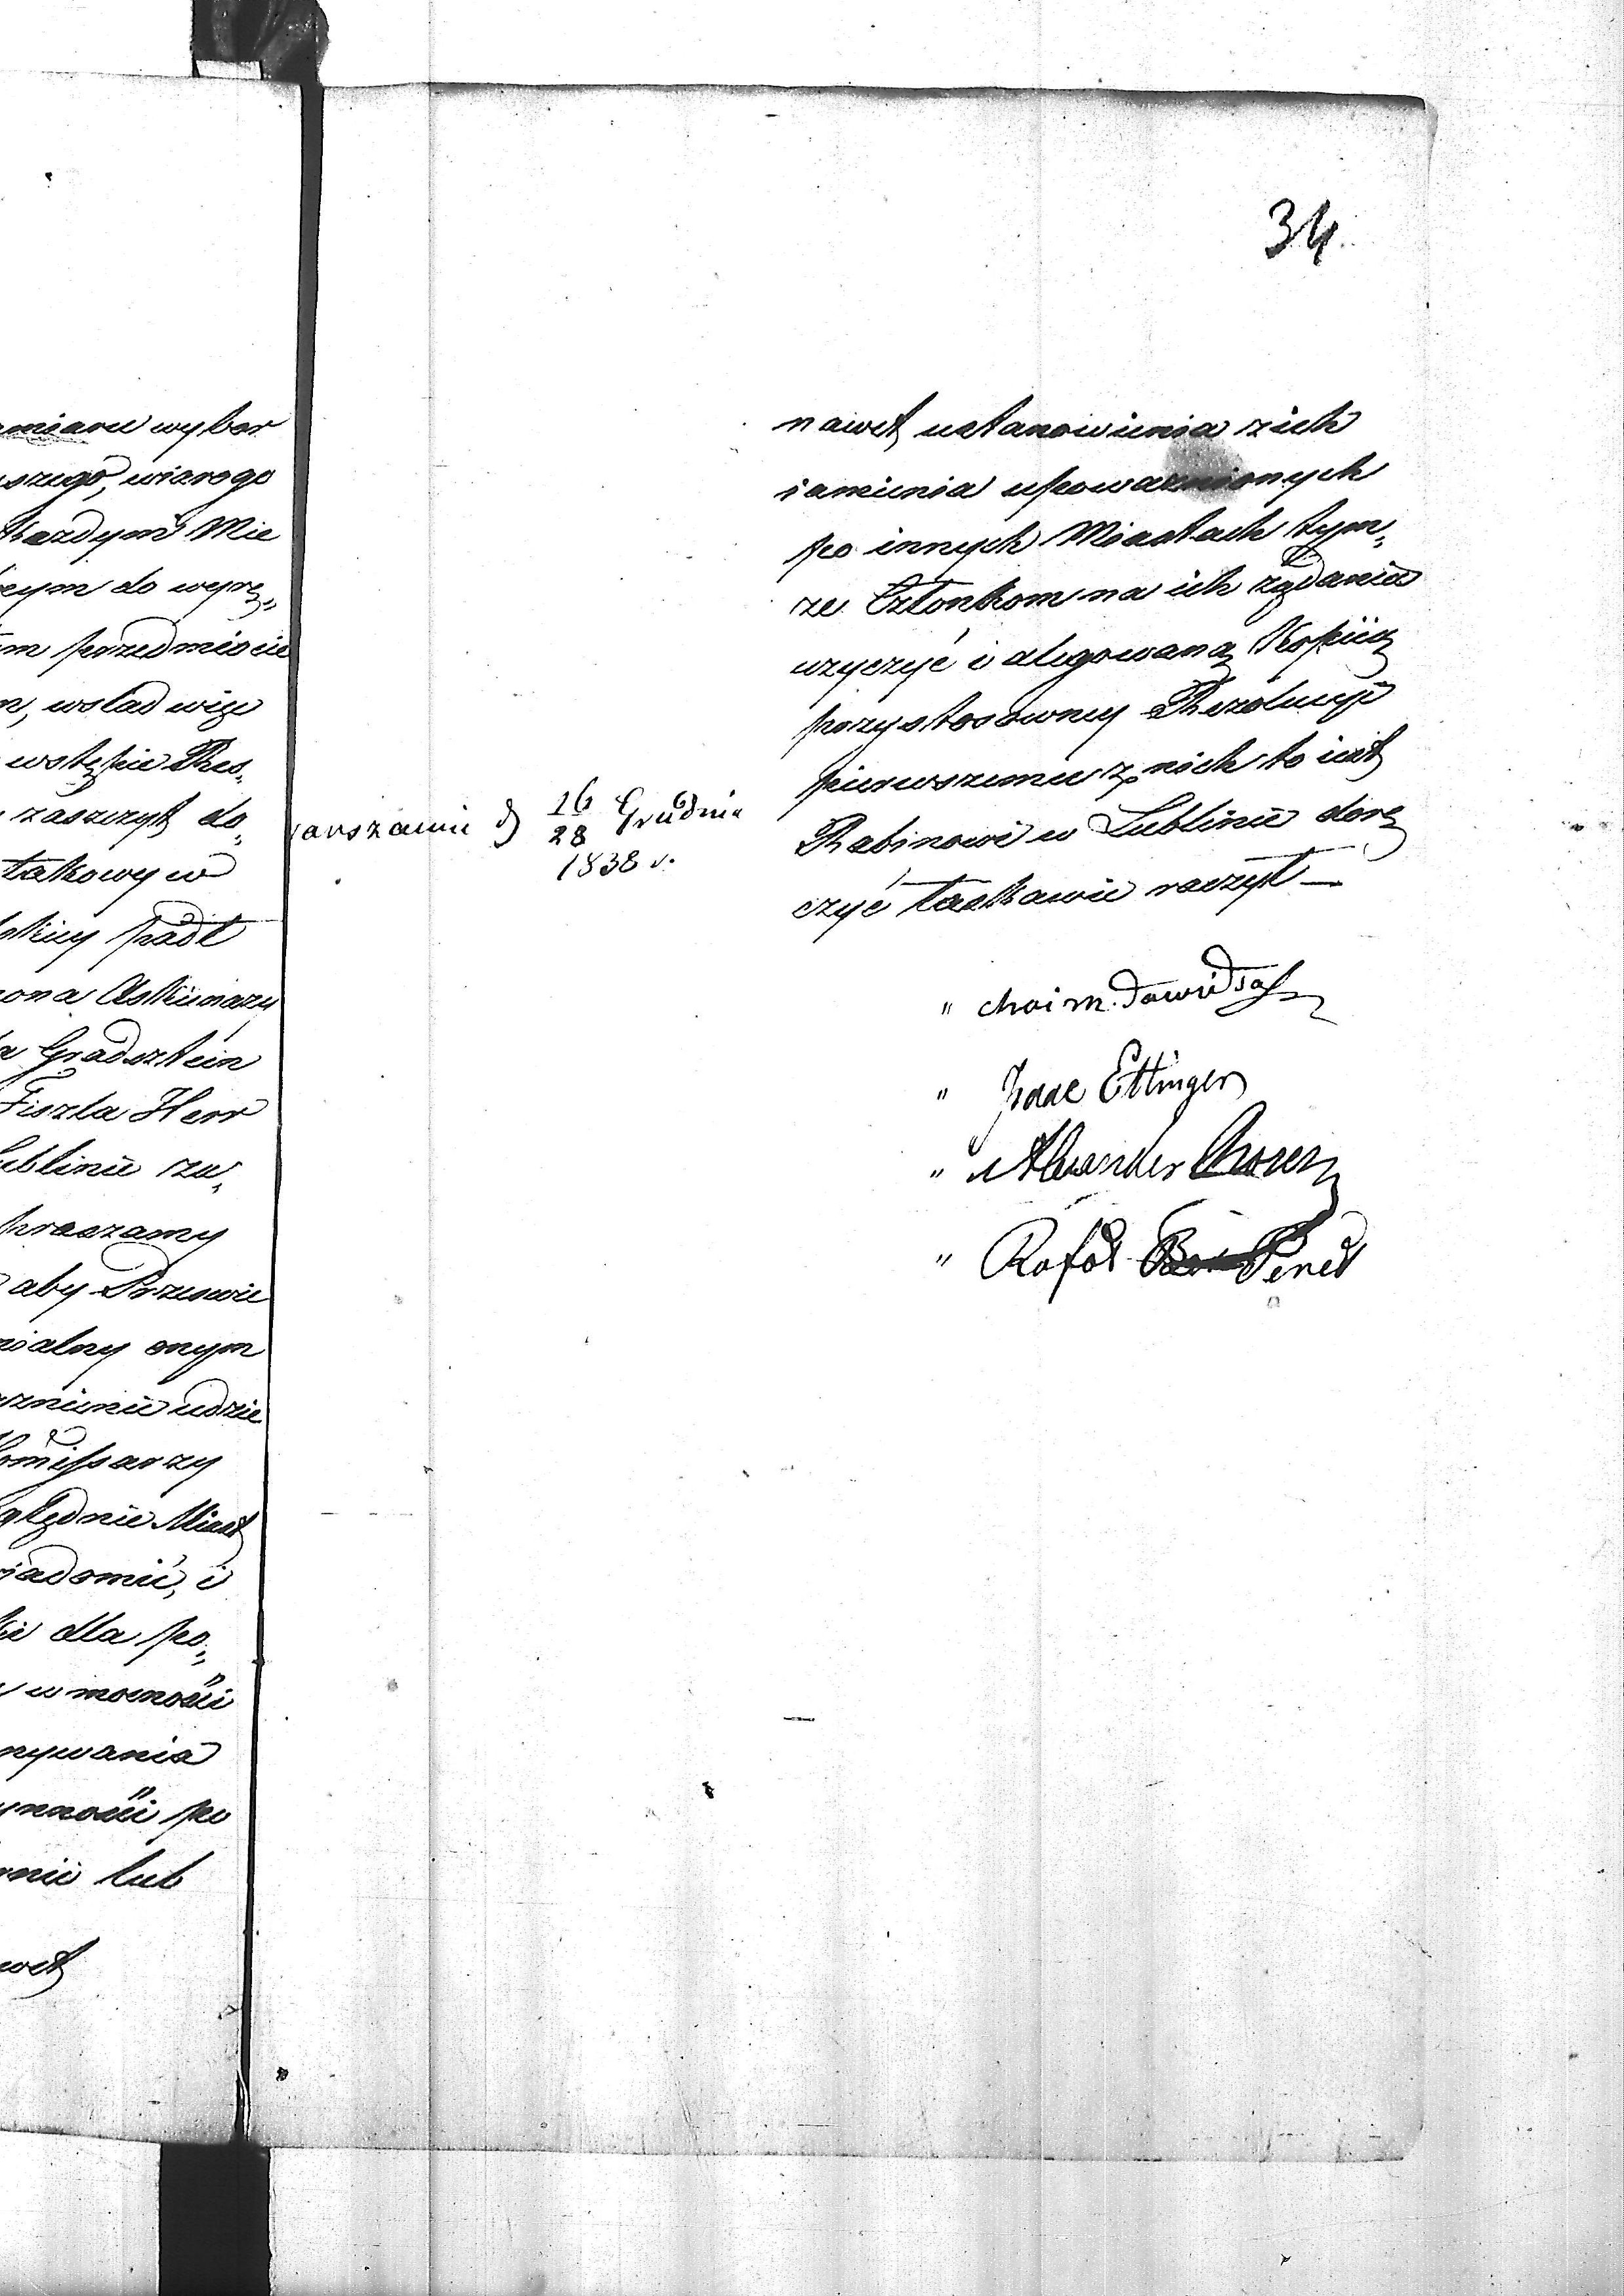 miaru wybor
szego, wiarogo
każdym Mie
cym do wyrę„
m przedmiocie
n, wslad więc
wstępie Res„
zaszczyt do„
takowy w
skiey padł
ona Askienazy
a Gradsztein
Fiszla Herr
ublinie za„
praszamy
aby Prześwie
ialny onym
znienie udzie
Komissarzy
ględnie Miast
iadomić, i
ie dla po„
w mocności
nywania
ynności po
nie lub
wet
34.
nawet ustanowienia zich
iamienia upoważnionych
po innych Miastach tym„
że Członkom na ich żądania
użyczyć i alegowaną Kopiią
przystosowney Rezolucyi
pierwszemu z nich to iest
Rabinowi w Lublinie dorę
czyć łaskawie raczył —
arszawie d 16/28 Grudnia
1838 r.
„ Chaim Dawids
„ Izaac Ettinger
„ Alexander
„ Rafał Peretz